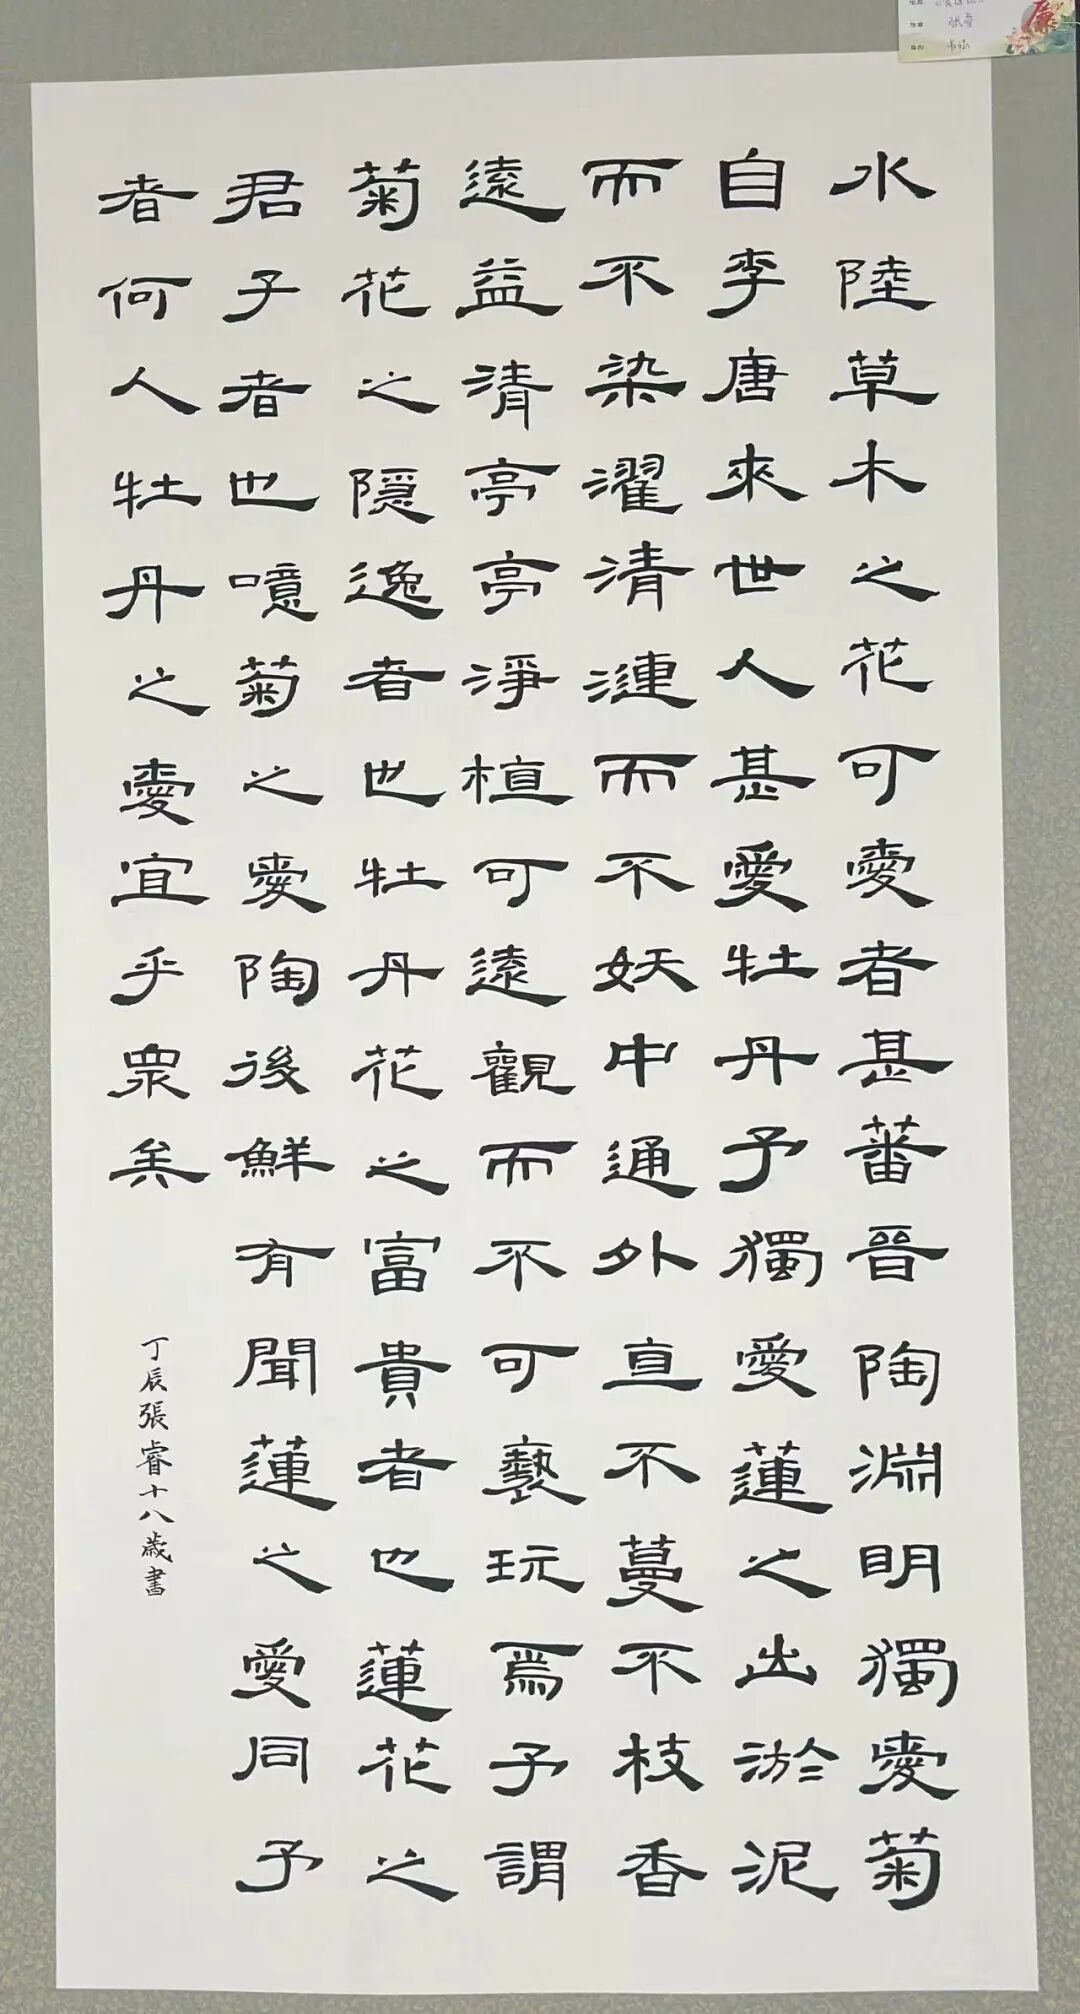 水陸草木之花可愛者甚蕃晉陶淵明獨愛菊
自李唐來世人甚愛牡丹予獨愛蓮之出淤泥
而不染濯清漣而不妖中通外直不蔓不枝香
遠益清亭亭淨植可遠觀而不可褻玩焉予謂
菊花之隱逸者也牡丹花之富貴者也蓮花之
君子者也噫菊之愛陶後鮮有聞蓮之愛同予
者何人牡丹之愛宜乎眾矣
丁辰張睿十八歲書
廉